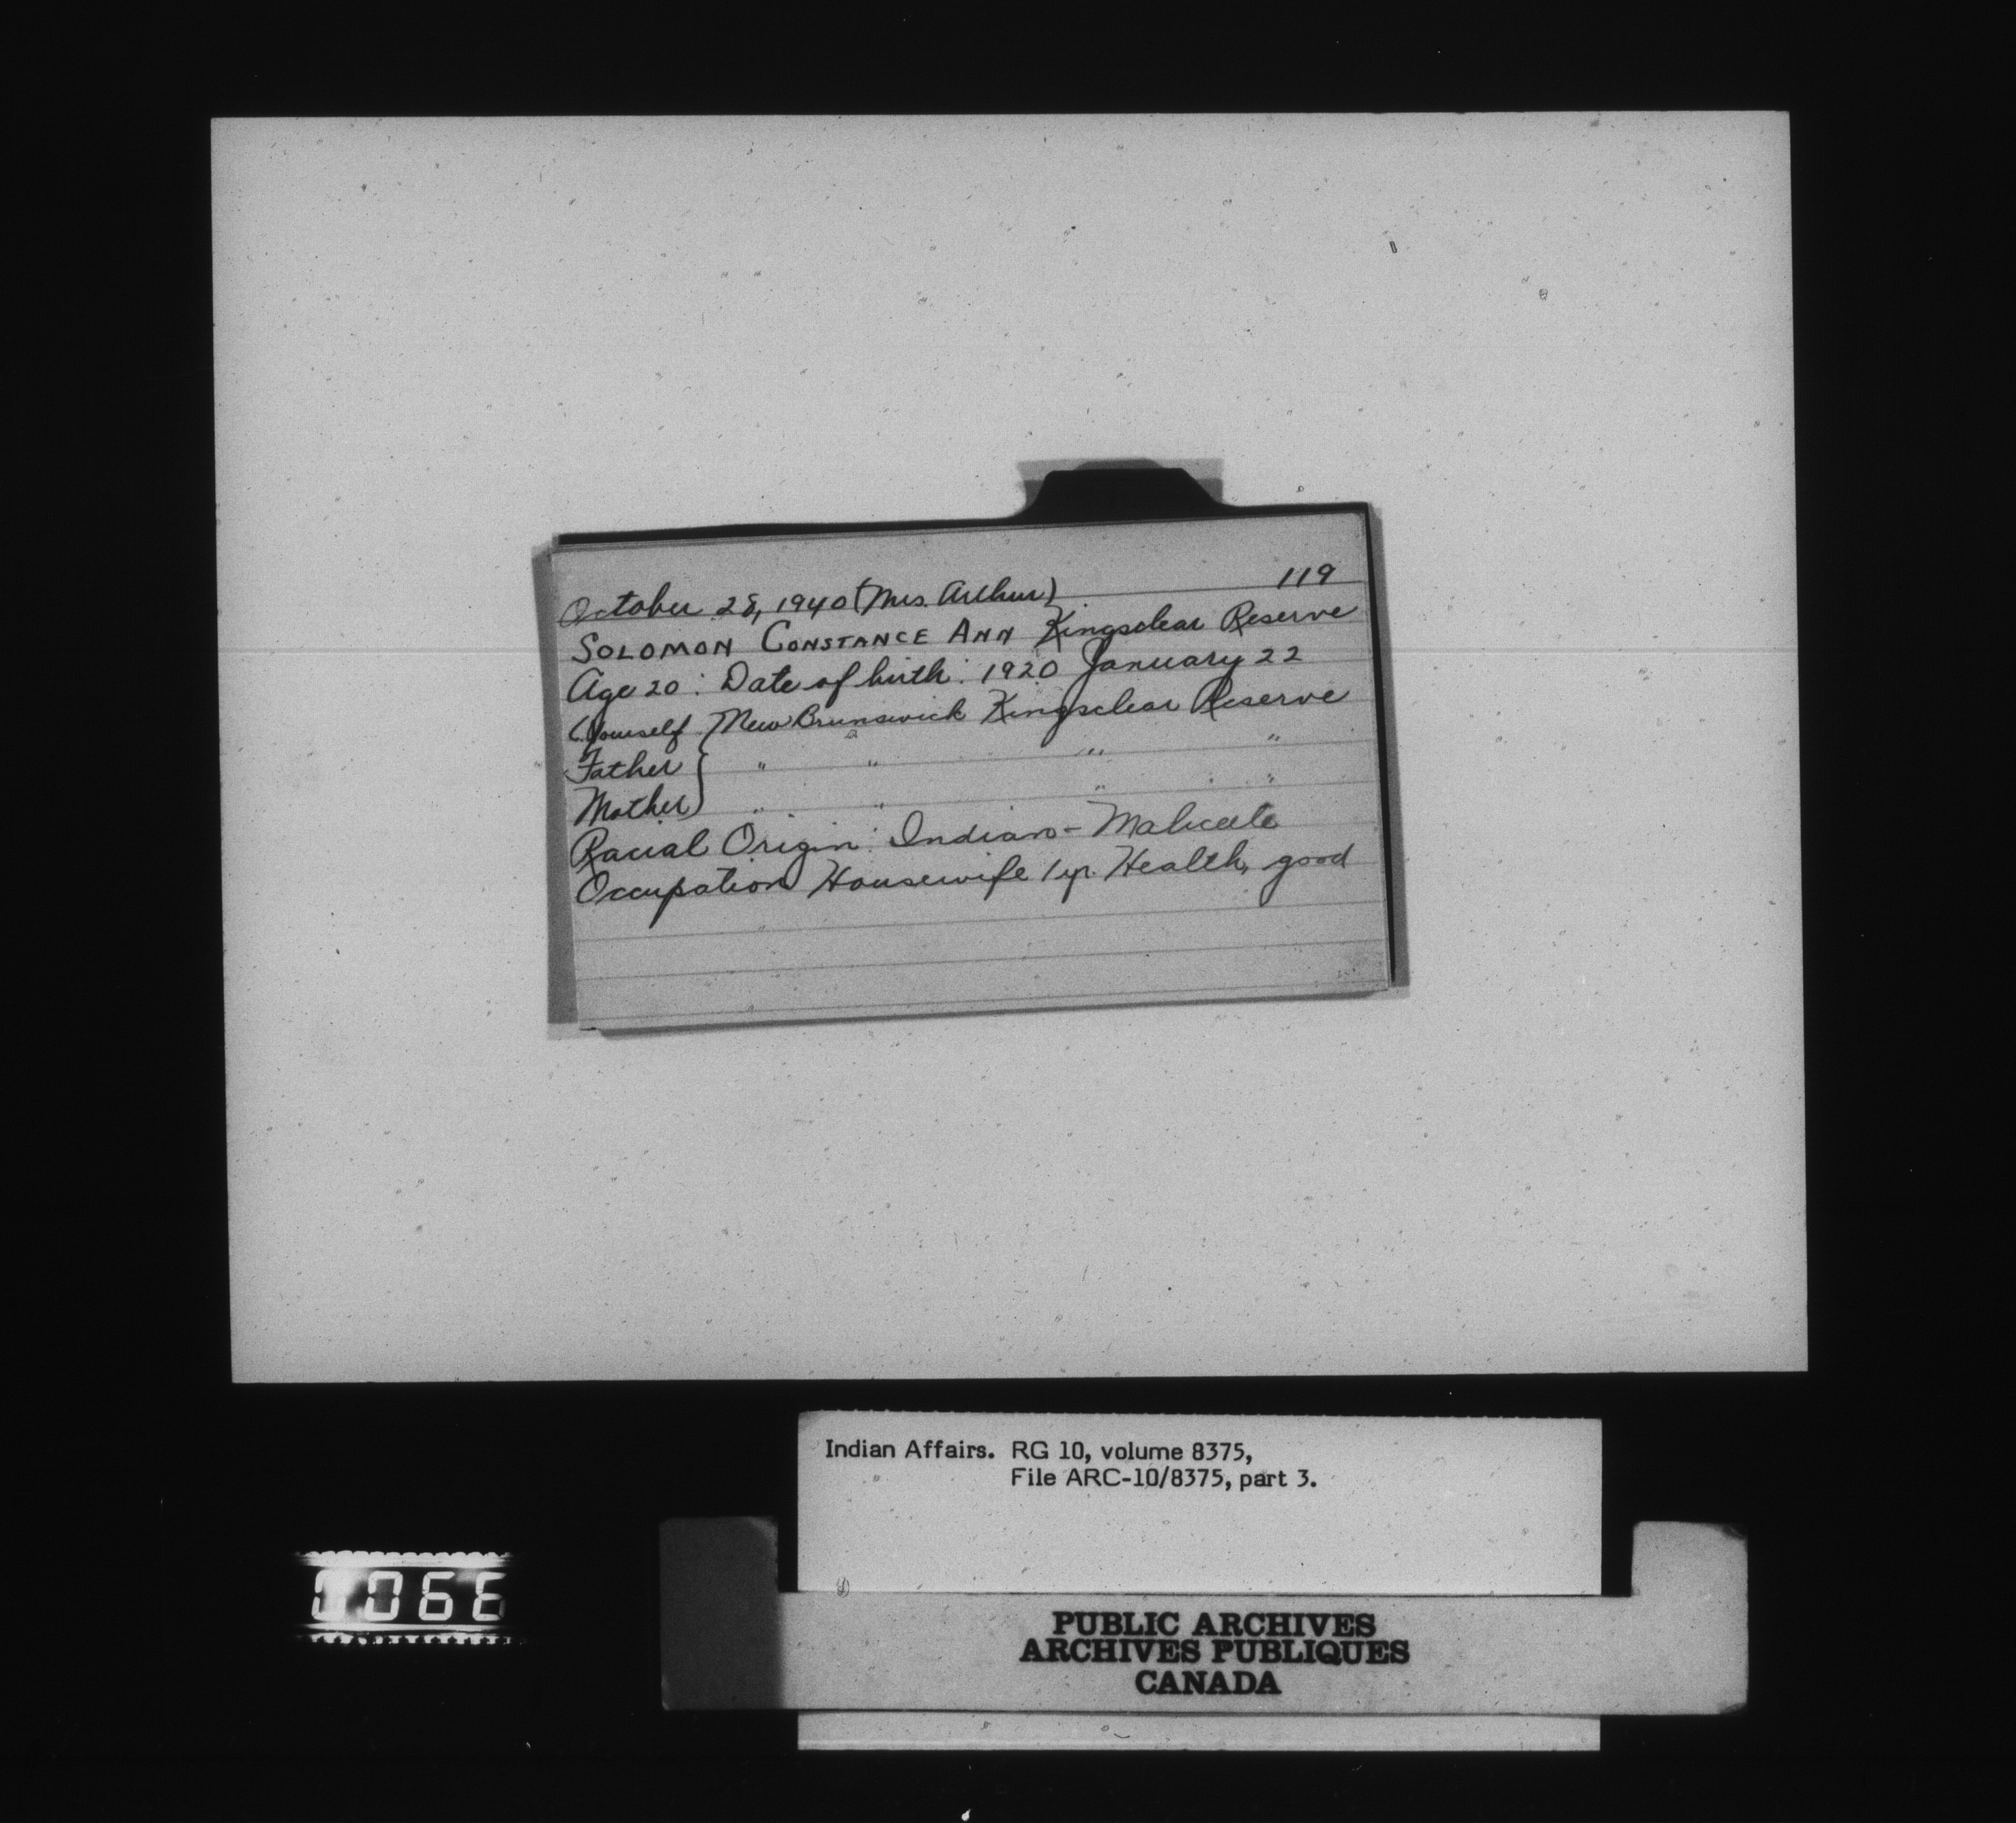 October 28, 1940 (Mrs. Arthur) 119
SOLOMON CONSTANCE ANN Kingsclear Reserve
Age 20 : Date of birth : 1920 January 22
(Yourself { New Brunswick Kingsclear Reserve
Father } " " " "
Mother } " " " "
Racial Origin : Indian - Malicete
Occupation Housewife 1 yr. Health, good
Indian Affairs. RG 10, volume 8375,
File ARC-10/8375, part 3.
0066
PUBLIC ARCHIVES
ARCHIVES PUBLIQUES
CANADA